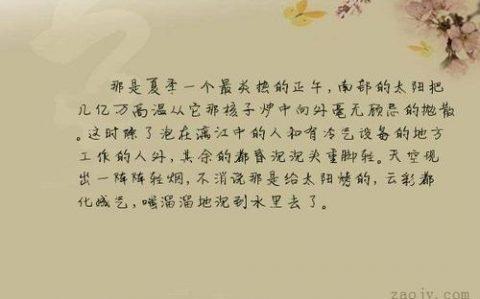 那是夏季一个最炎热的正午，南部的太阳把
几亿万高温从它那核子炉中向外毫无顾忌的抛散
。这时除了泡在漓江中的人和有冷气设备的地方
工作的人外，其余的都昏沉沉头重脚轻。天空现
出一阵阵轻烟，不消说那是给太阳烤的，云彩都
化成气，嗤溜溜地沉到水里去了。
zaojv.com